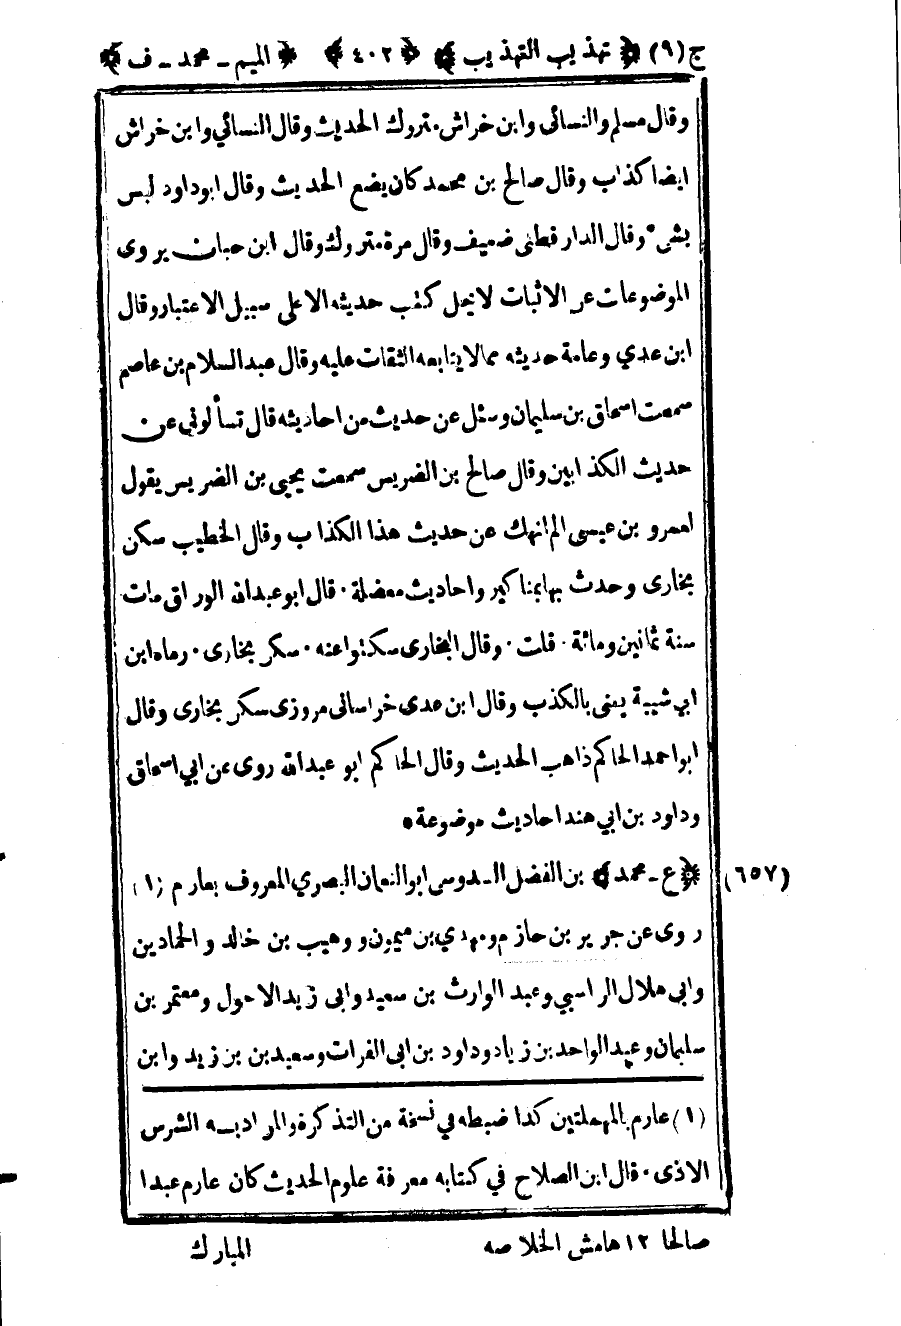 ج(٩) ﴿ تهذيب التهذيب ﴾ ﴿ ٤٠٢ ﴾ ﴿ الميم - محمد - ف ﴾
وقال مسلم والنسائى وابن خراش متروك الحديث وقال النسائي وابن خراش
ايضا كذاب وقال صالح بن محمد كان يضع الحديث وقال ابو داود ليس
بشىء وقال الدار قطنى ضعيف وقال مرة متروك وقال ابن حبان يروى
الموضوعات عن الاثبات لا يحل كتب حديثه الا على سبيل الاعتبار وقال
ابن عدي وعامة حديثه مما لا يتابعه الثقات عليه وقال عبد السلام بن عاصم
سمعت اسحاق بن سليمان وسئل عن حديث من احاديثه قال تسألوني عن
حديث الكذابين وقال صالح بن الضريس سمعت يحيى بن الضريس يقول
لعمرو بن عيسى الم انهك عن حديث هذا الكذاب وقال الخطيب سكن
بخارى وحدث بها بمناكير واحاديث معضلة · قال ابو عبدالله الوراق مات
سنة ثمانين ومائة · قلت · وقال البخارى سكتوا عنه · سكن بخارى · رماه ابن
ابي شيبة يعنى بالكذب وقال ابن عدى خراسانى مروزى سكن بخارى وقال
ابو احمد الحاكم ذاهب الحديث وقال الحاكم ابو عبدالله روى عن ابي اسحاق
وداود بن ابي هند احاديث موضوعة •
﴿ ع - محمد ﴾ بن الفضل السدوسى ابو النعمان البصري المعروف بعارم (١) (٦٥٧)
روى عن جرير بن حازم ومهدي بن ميمون ووهيب بن خالد والحمادين
وابى هلال الراسبي وعبد الوارث بن سعيد وابى زيد الاحول ومعتمر بن
سليمان وعبد الواحد بن زياد وداود بن ابى الفرات وسعيد بن زيد وابن
(١) عارم بالمهملتين كذا ضبطه في نسخة من التذكرة والمراد به الشرس
الاذى · قال ابن الصلاح في كتابه معرفة علوم الحديث كان عارم عبدا
صالحا ١٢ هامش الخلاصه
المبارك